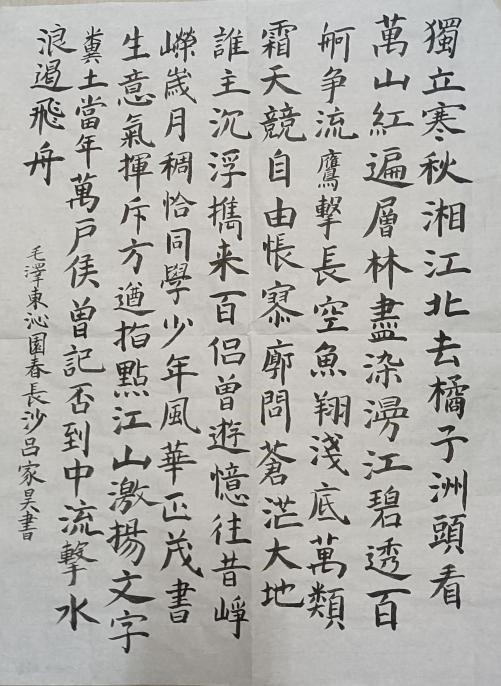 獨立寒秋湘江北去橘子洲頭看
萬山紅遍層林盡染漫江碧透百
舸争流鷹擊長空魚翔淺底萬類
霜天競自由悵寥廓問蒼茫大地
誰主沉浮攜来百侣曾遊憶往昔崢
嶸歲月稠恰同學少年風華正茂書
生意氣揮斥方遒指點江山激揚文字
糞土當年萬户侯曾記否到中流擊水
浪遏飛舟
毛澤東沁園春長沙吕家昊書